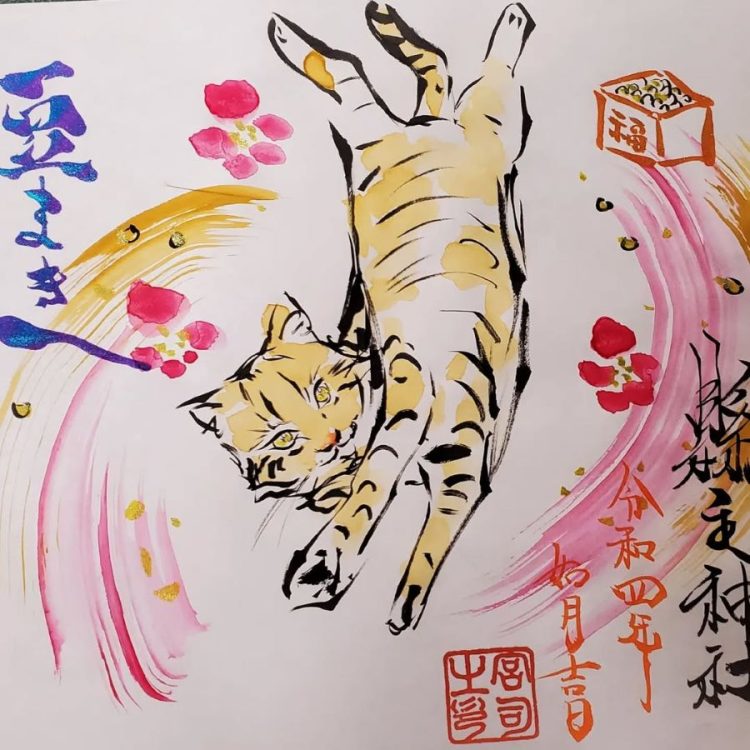 福
主神社
令和四年
如月吉日
宮司之印
豆まき